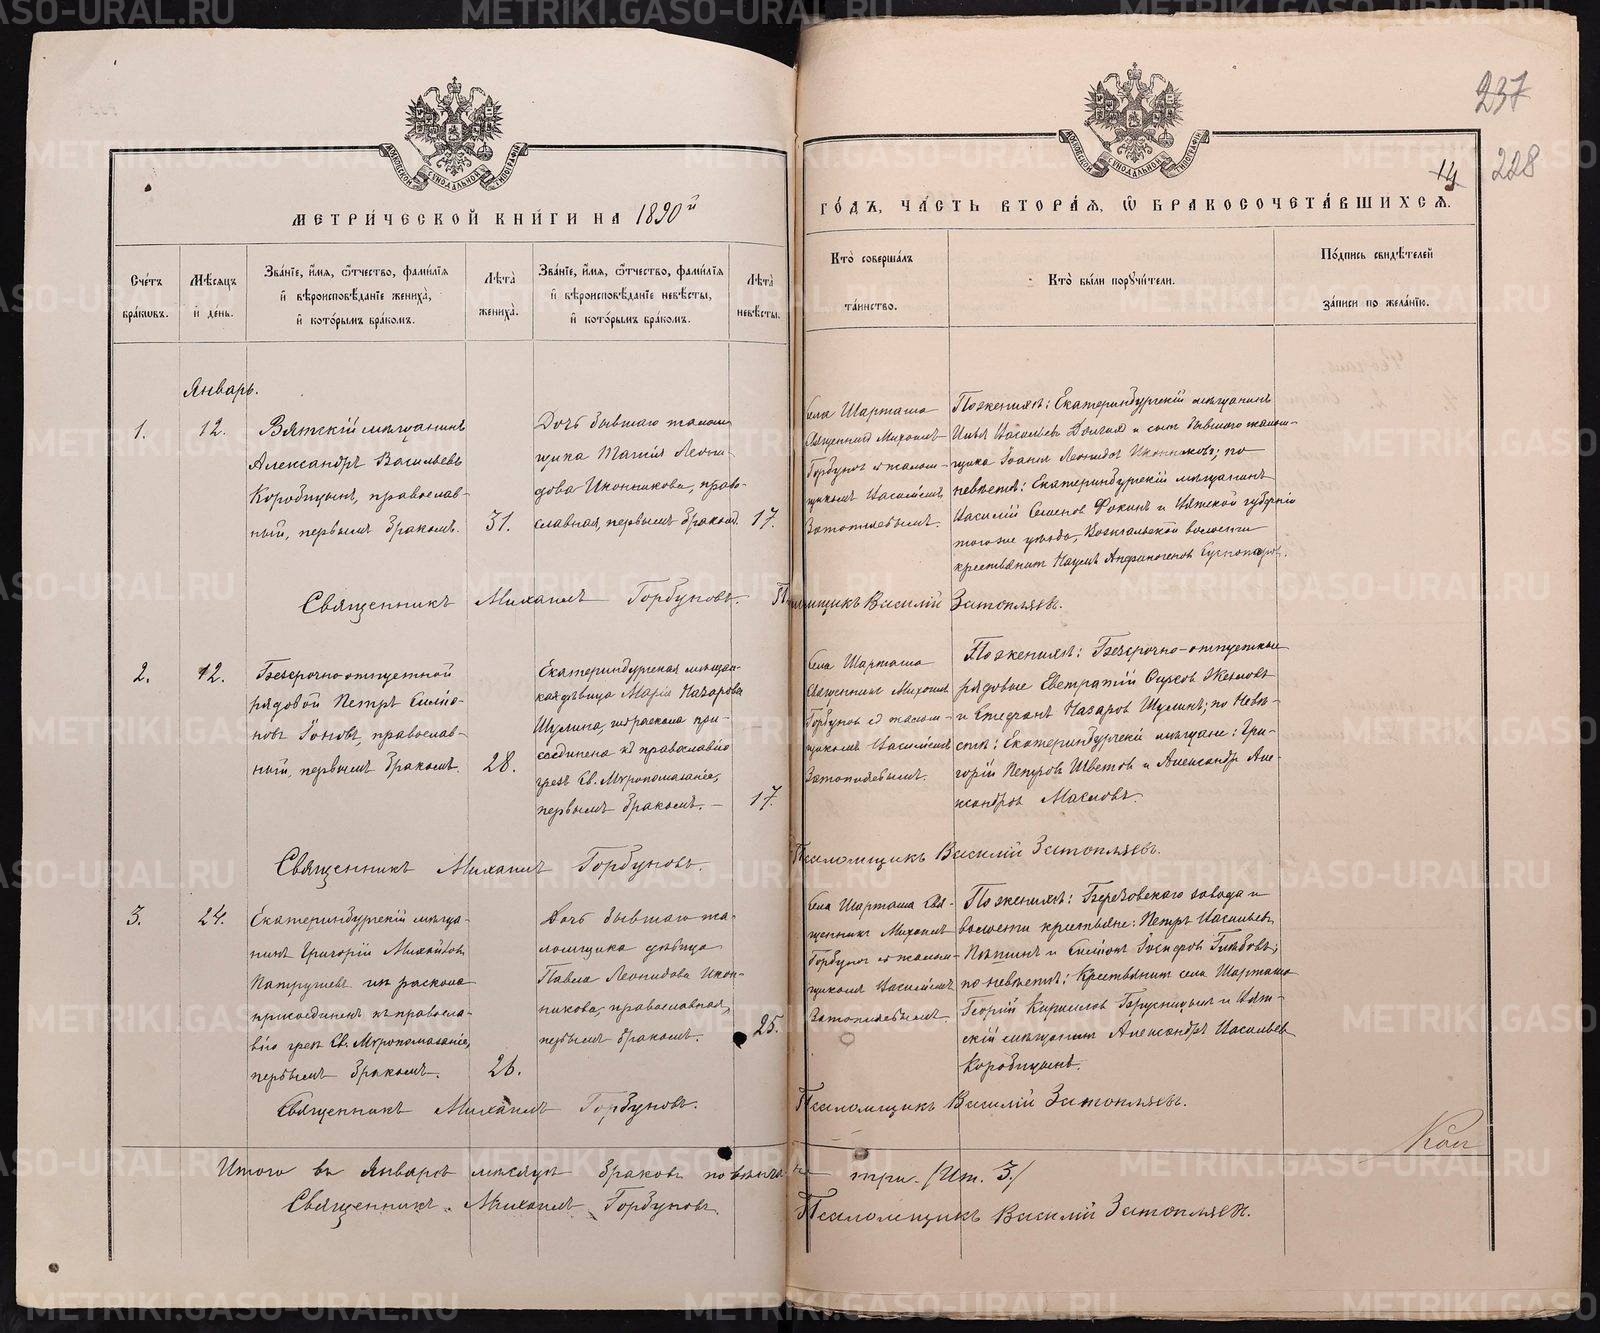 237
14
228
МЕТРИ́ЧЕСКОЙ КНИ́ГИ НА 1890й
ГО́ДЪ, ЧА́СТЬ ВТОРА́Я, Ѡ БРАКОСОЧЕТА́ВШИХСЯ.
Сче́тъ бра́кѡвъ.
Мѣ́сяцъ и де́нь.
Зва́нїе, и́мя, ѻ́тчество, фами́лїя и вѣроисповѣ́данїе жениха̀, и кото́рымъ бра́комъ.
Лѣ́та жениха̀.
Зва́нїе, и́мя, ѻ́тчество, фами́лїя и вѣроисповѣ́данїе невѣ́сты, и кото́рымъ бра́комъ.
Лѣ́та невѣ́сты.
Кто̀ соверша́лъ та́инство.
Кто̀ бы́ли поручи́тели.
По́дпись свидѣ́телей за́писи по жела́нїю.
Январь.
1.
12.
Вятскій мѣщанинъ
Александръ Васильевъ
Коробицынъ, православ-
ный, первымъ бракомъ.
31.
Дочь бывшаго псалом-
щика Таисія Леони-
дова Иконникова, право-
славная, первымъ бракомъ.
17.
Села Шарташа
Священникъ Михаилъ
Горбуновъ съ псалом-
щикомъ Василіемъ
Затопляевымъ.
По женихѣ: Екатеринбургскій мѣщанинъ
Васильевъ и сынъ бывшаго псалом-
щика Іоаннъ Леонидовъ Иконниковъ; по
невѣстѣ: Екатеринбургскій мѣщанинъ
Василій Семеновъ Фокинъ и Вятской губерніи
того же уѣзда, волости
крестьянинъ Наумъ
Священникъ Михаилъ Горбуновъ. Псаломщикъ Василій Затопляевъ.
2.
12.
Безсрочно-отпускной
рядовой Петръ Симео-
новъ Іоновъ, православ-
ный, первымъ бракомъ.
28.
Екатеринбургская мѣщан-
ская дѣвица Марія Назарова
Шулина, изъ раскола при-
соединена къ православію
чрезъ Св. Мѵропомазаніе,
первымъ бракомъ. —
17.
Села Шарташа
Священникъ Михаилъ
Горбуновъ съ псалом-
щикомъ Василіемъ
Затопляевымъ.
По женихѣ: Безсрочно-отпускные
рядовые Евстратій
и Стефанъ Назаровъ Шулинъ; по невѣ-
стѣ: Екатеринбургскіе мѣщане: Гри-
горій Петровъ Шветовъ и Александръ Але-
ксандровъ Масловъ.
Священникъ Михаилъ Горбуновъ. Псаломщикъ Василій Затопляевъ.
3.
24.
Екатеринбургскій мѣща-
нинъ Григорій Михайловъ
Патрушевъ изъ раскола
присоединенъ къ правосла-
вію чрезъ Св. Мѵропомазаніе,
первымъ бракомъ.
26.
Дочь бывшаго пса-
ломщика дѣвица
Павла Леонидова Икон-
никова, православная,
первымъ бракомъ.
25.
Села Шарташа Свя-
щенникъ Михаилъ
Горбуновъ съ псалом-
щикомъ Василіемъ
Затопляевымъ.
По женихѣ: Березовскаго завода и
волости крестьяне: Петръ Васильевъ
и Симеонъ Іосифовъ Глѣбовъ;
по невѣстѣ: Крестьянинъ села Шарташа
Георгій Кириловъ Брусницынъ и Вят-
скій мѣщанинъ Александръ Васильевъ
Коробицынъ.
Священникъ Михаилъ Горбуновъ. Псаломщикъ Василій Затопляевъ.
Итого въ Январѣ мѣсяцѣ браковъ повѣнчано три. /Ит. 3./
Священникъ Михаилъ Горбуновъ. Псаломщикъ Василій Затопляевъ.
METRIKI.GASO-URAL.RU